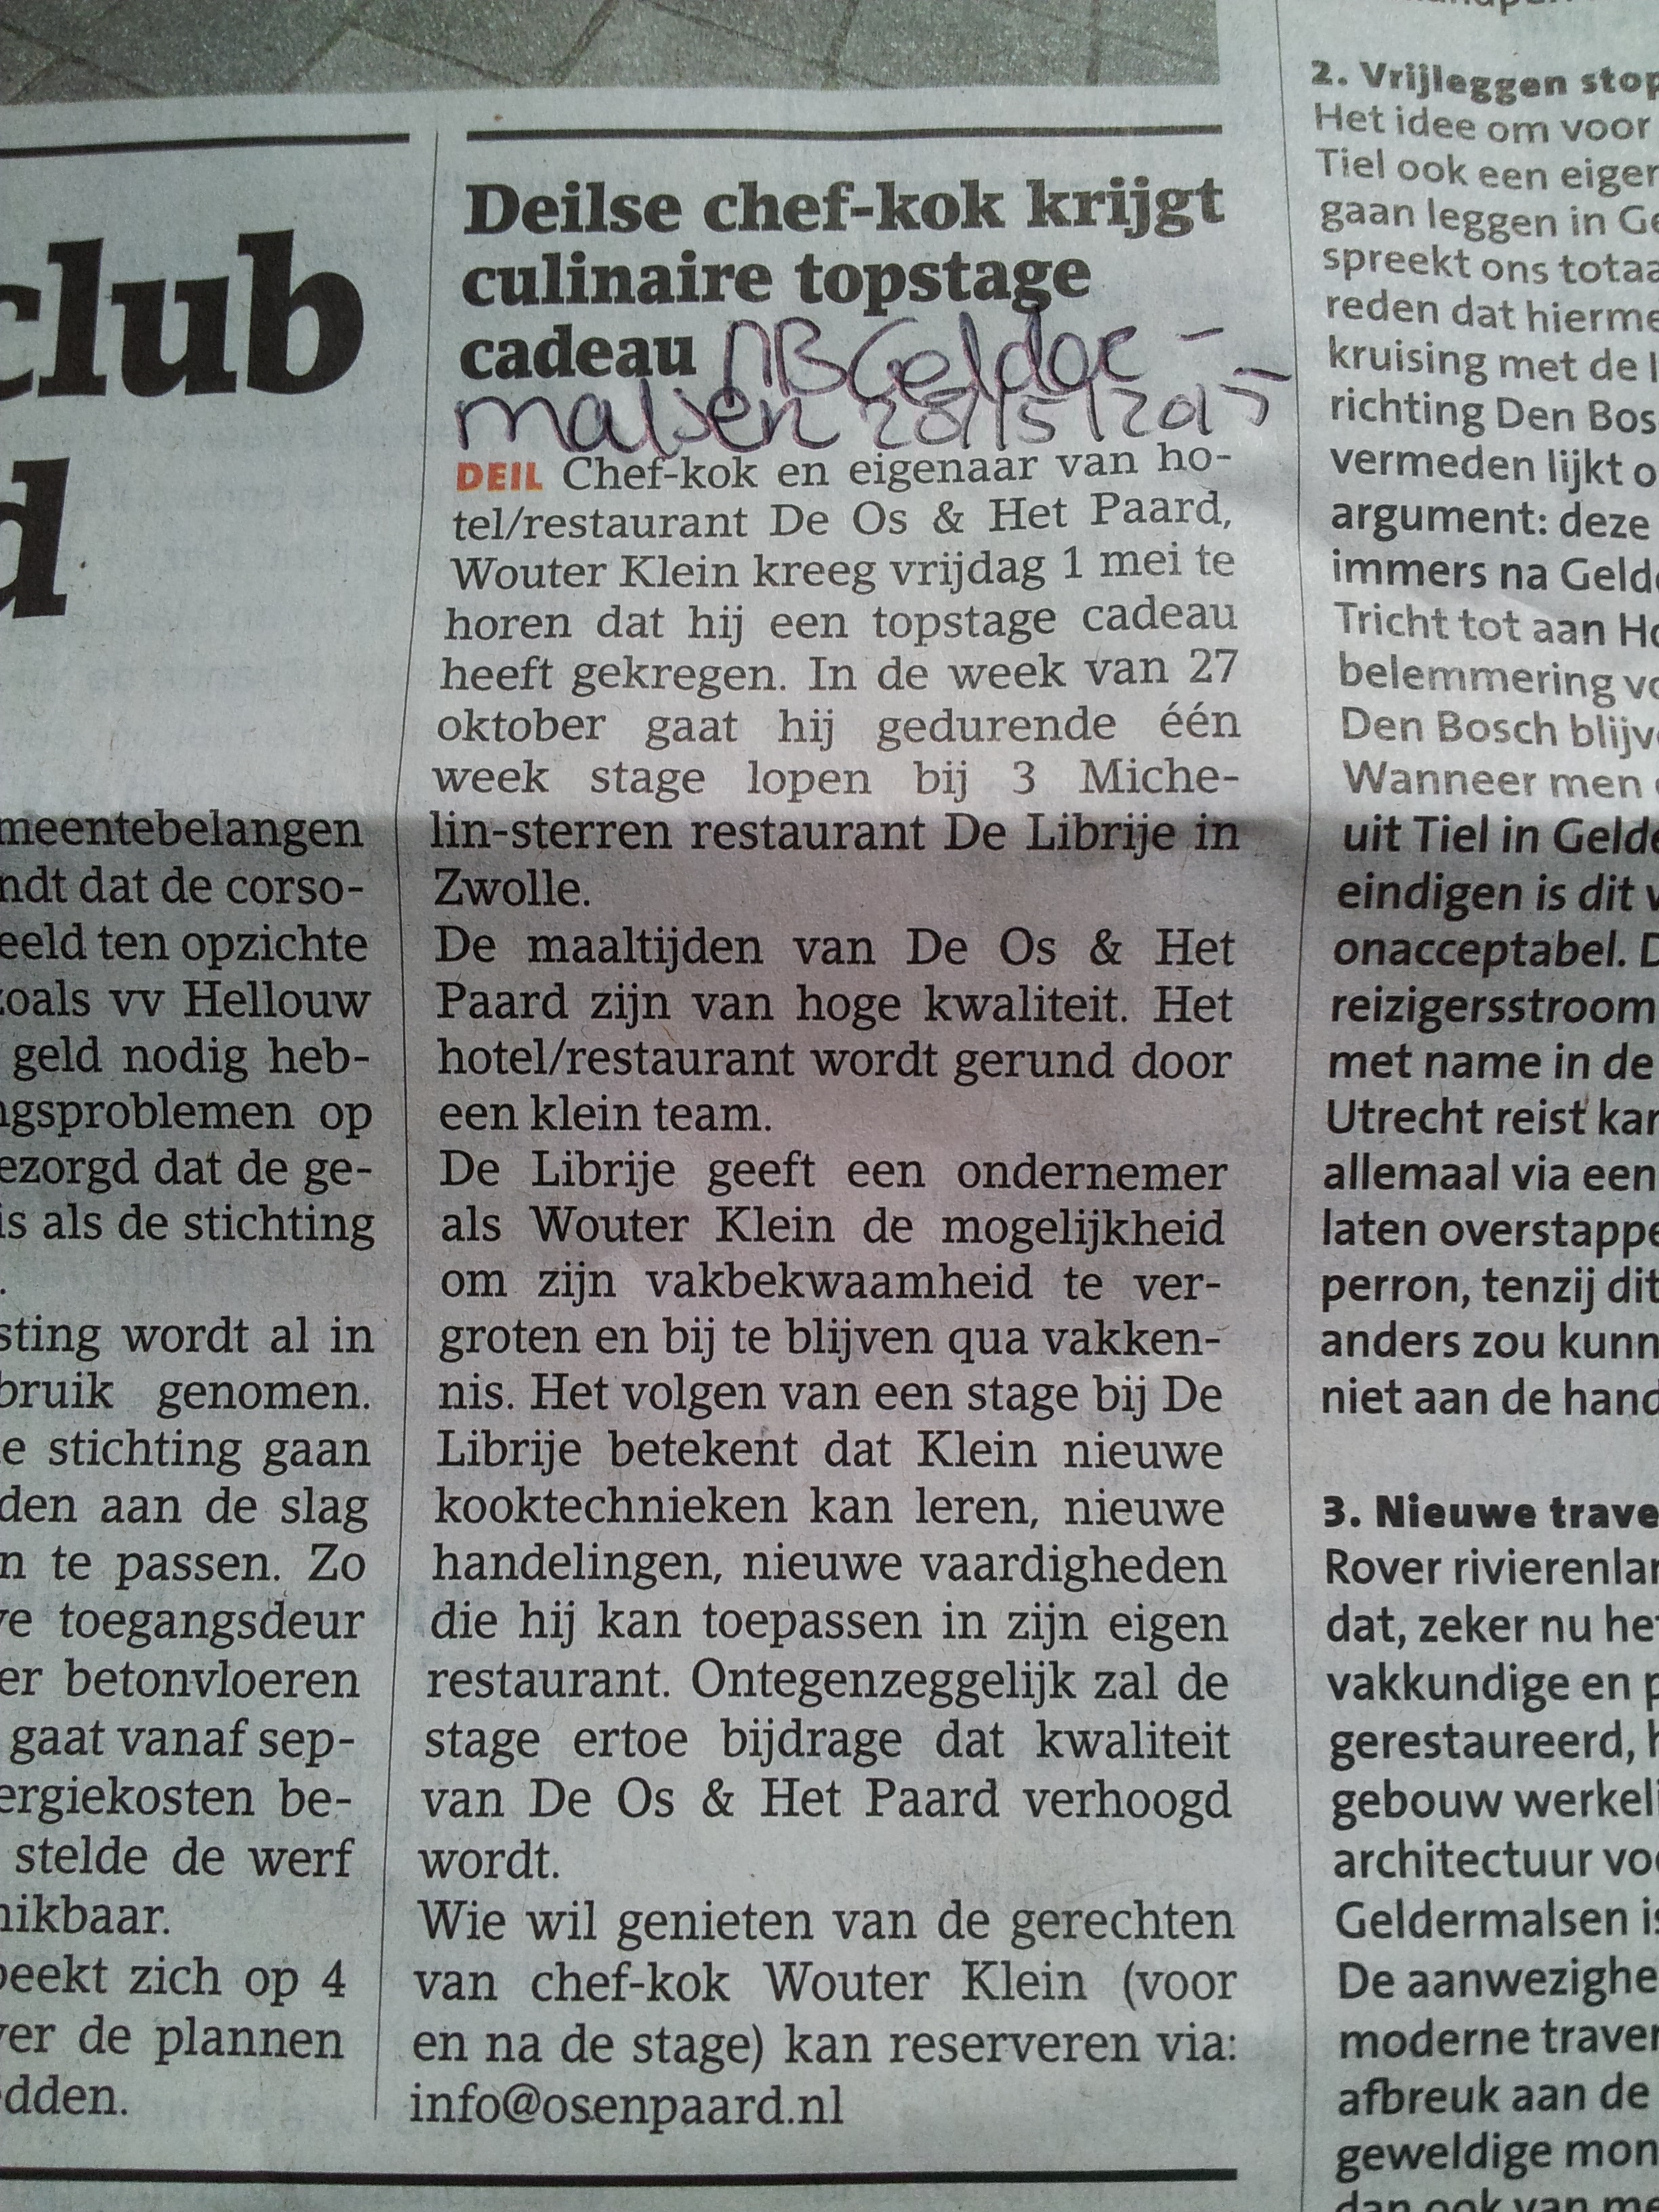 club
d
meentebelangen
ndt dat de corso-
eeld ten opzichte
zoals vv Hellouw
geld nodig heb-
ngsproblemen op
ezorgd dat de ge-
is als de stichting
.
sting wordt al in
bruik genomen.
e stichting gaan
den aan de slag
n te passen. Zo
ve toegangsdeur
er betonvloeren
gaat vanaf sep-
ergiekosten be-
stelde de werf
hikbaar.
peekt zich op 4
ver de plannen
dden.
Deilse chef-kok krijgt
culinaire topstage
cadeau NB Gelder-
malsen 28/5/2015
DEIL Chef-kok en eigenaar van ho-
tel/restaurant De Os & Het Paard,
Wouter Klein kreeg vrijdag 1 mei te
horen dat hij een topstage cadeau
heeft gekregen. In de week van 27
oktober gaat hij gedurende één
week stage lopen bij 3 Miche-
lin-sterren restaurant De Librije in
Zwolle.
De maaltijden van De Os & Het
Paard zijn van hoge kwaliteit. Het
hotel/restaurant wordt gerund door
een klein team.
De Librije geeft een ondernemer
als Wouter Klein de mogelijkheid
om zijn vakbekwaamheid te ver-
groten en bij te blijven qua vakken-
nis. Het volgen van een stage bij De
Librije betekent dat Klein nieuwe
kooktechnieken kan leren, nieuwe
handelingen, nieuwe vaardigheden
die hij kan toepassen in zijn eigen
restaurant. Ontegenzeggelijk zal de
stage ertoe bijdrage dat kwaliteit
van De Os & Het Paard verhoogd
wordt.
Wie wil genieten van de gerechten
van chef-kok Wouter Klein (voor
en na de stage) kan reserveren via:
info@osenpaard.nl
2. Vrijleggen stop
Het idee om voor
Tiel ook een eigen
gaan leggen in Ge
spreekt ons totaa
reden dat hierme
kruising met de l
richting Den Bos
vermeden lijkt o
argument: deze
immers na Gelde
Tricht tot aan Ho
belemmering vo
Den Bosch blijve
Wanneer men
uit Tiel in Gelde
eindigen is dit
onacceptabel. D
reizigersstroom
met name in de
Utrecht reist kan
allemaal via een
laten overstappe
perron, tenzij dit
anders zou kunn
niet aan de hand
3. Nieuwe trave
Rover rivierenlan
dat, zeker nu het
vakkundige en p
gerestaureerd, h
gebouw werkeli
architectuur voo
Geldermalsen is
De aanwezighe
moderne traver
afbreuk aan de
geweldige mon
dan ook van me